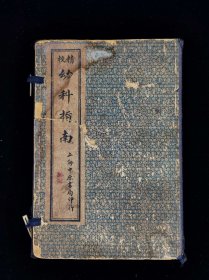 精校
幼科指南
上海千頃堂書局印行